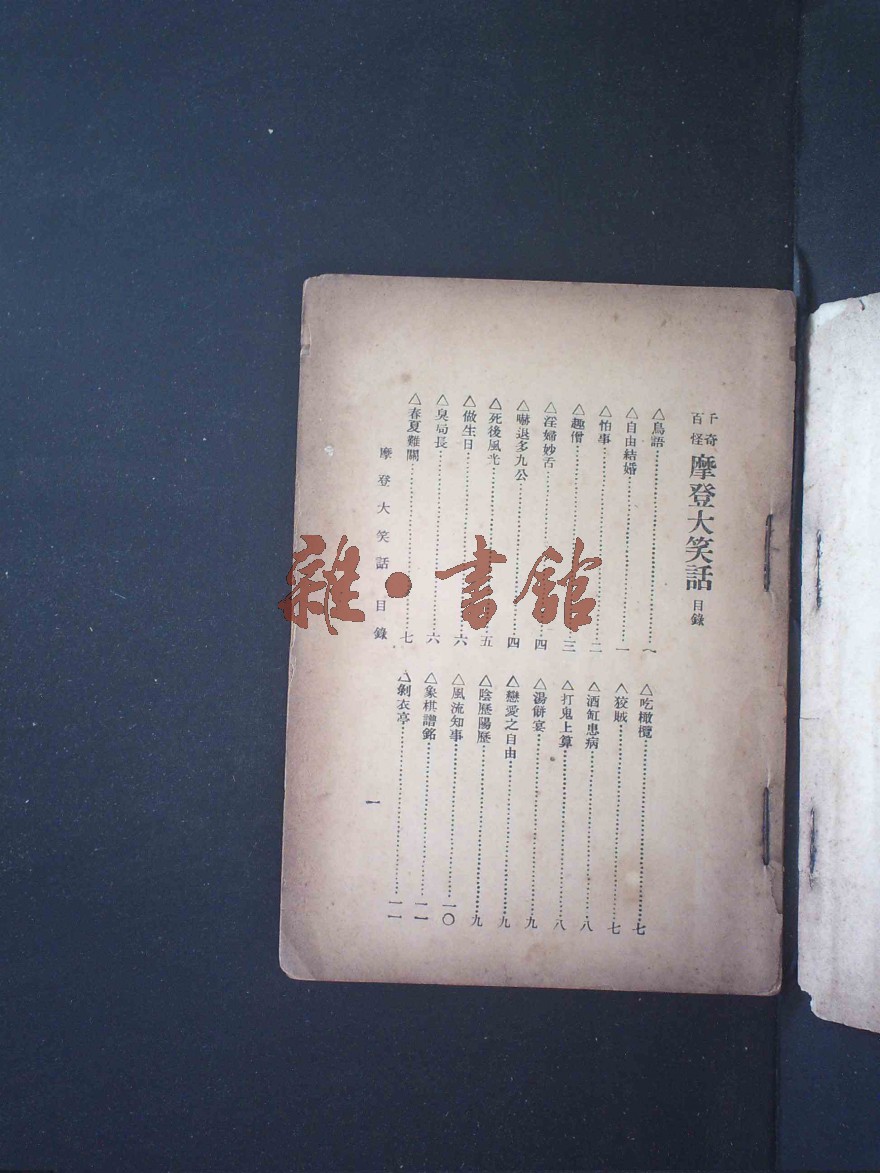 千奇
百怪
摩登大笑話 目錄
△鳥語……一
△自由結婚……一
△怕事……二
△趣僧……三
△淫婦妙舌……四
△嚇退多九公……四
△死後風光……五
△做生日……六
△臭局長……六
△春夏難關……七
△吃橄欖……七
△狡賊……七
△酒缸患病……八
△打鬼上算……八
△湯餅宴……九
△戀愛之自由……九
△陰歷陽歷……九
△風流知事……一〇
△象棋譜銘……一一
△剝衣亭……一一
摩登大笑話 目錄
一
雜·書館